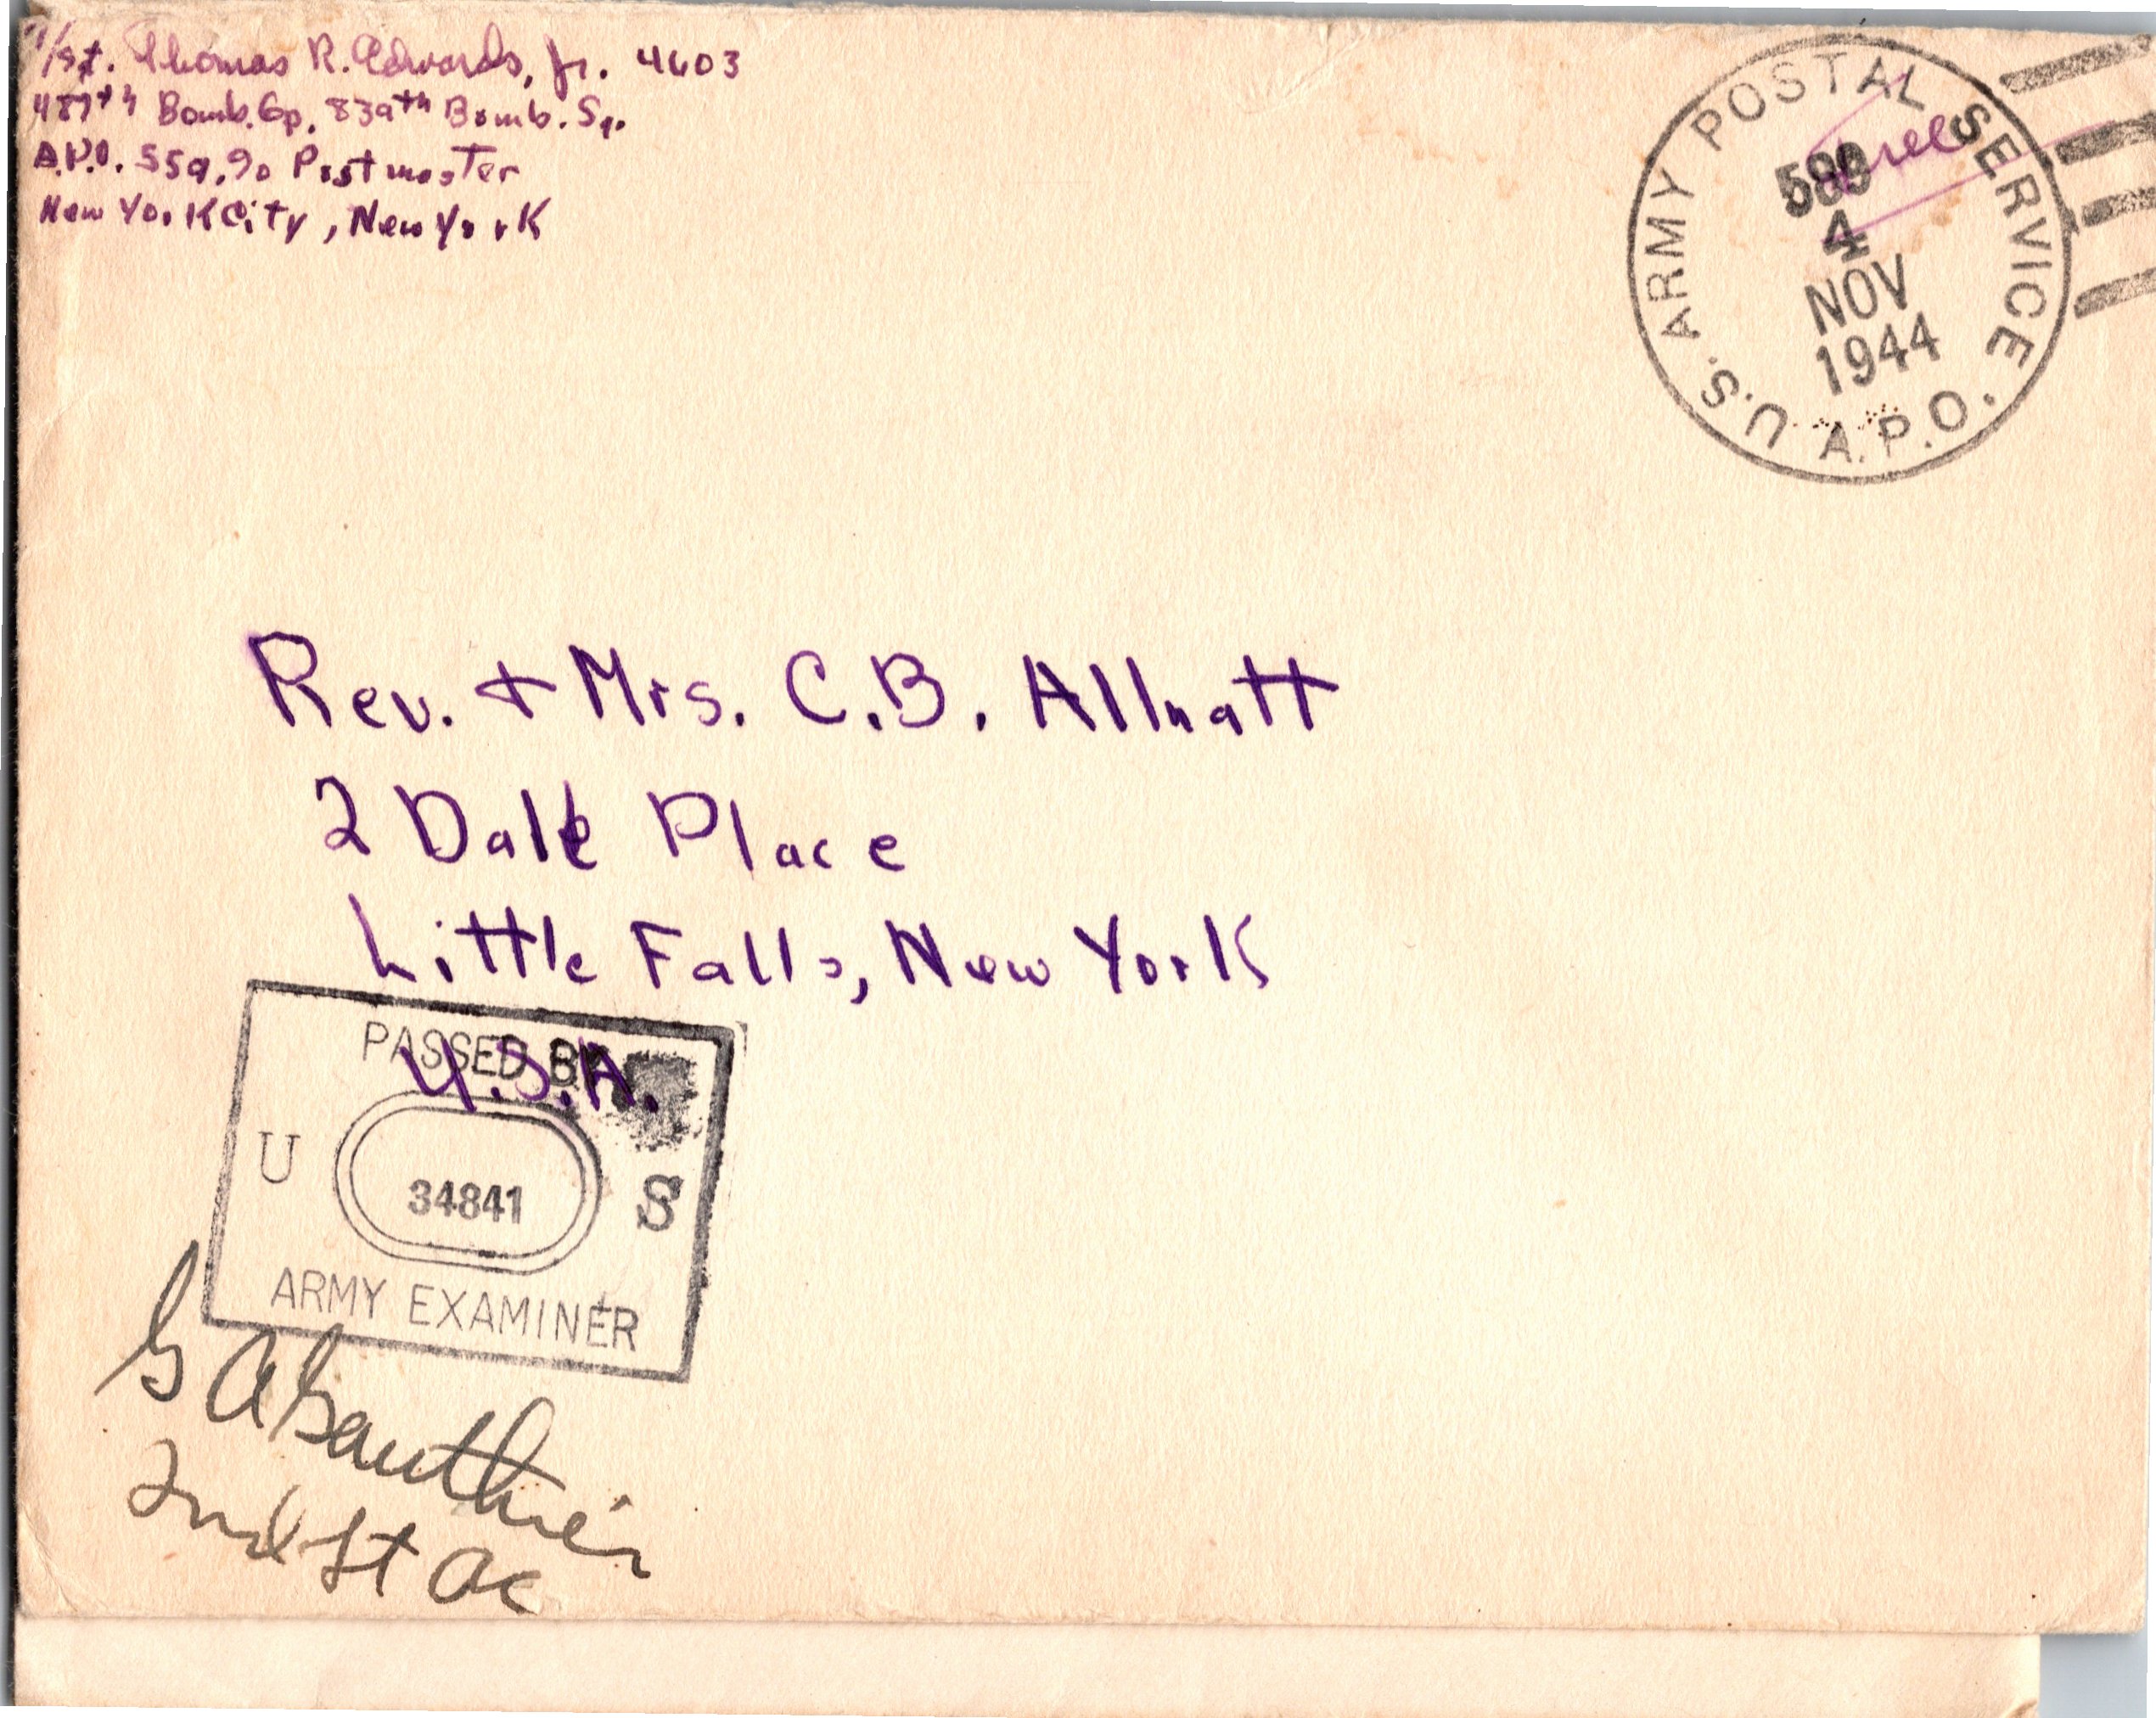 1/st. Thomas R. Edwards, Jr. 4603
487th Bomb. Gp. 839th Bomb. Sq.
A.P.O. 559, %o Postmaster
New York City, New York
U.S. ARMY POSTAL SERVICE
A.P.O.
Free
589
4
NOV
1944
Rev. + Mrs. C.B. Allnatt
2 Dale Place
Little Falls, New York
U.S.A.
PASSED BY
U 34841 S
ARMY EXAMINER
G A Gauthier
2nd Lt AC